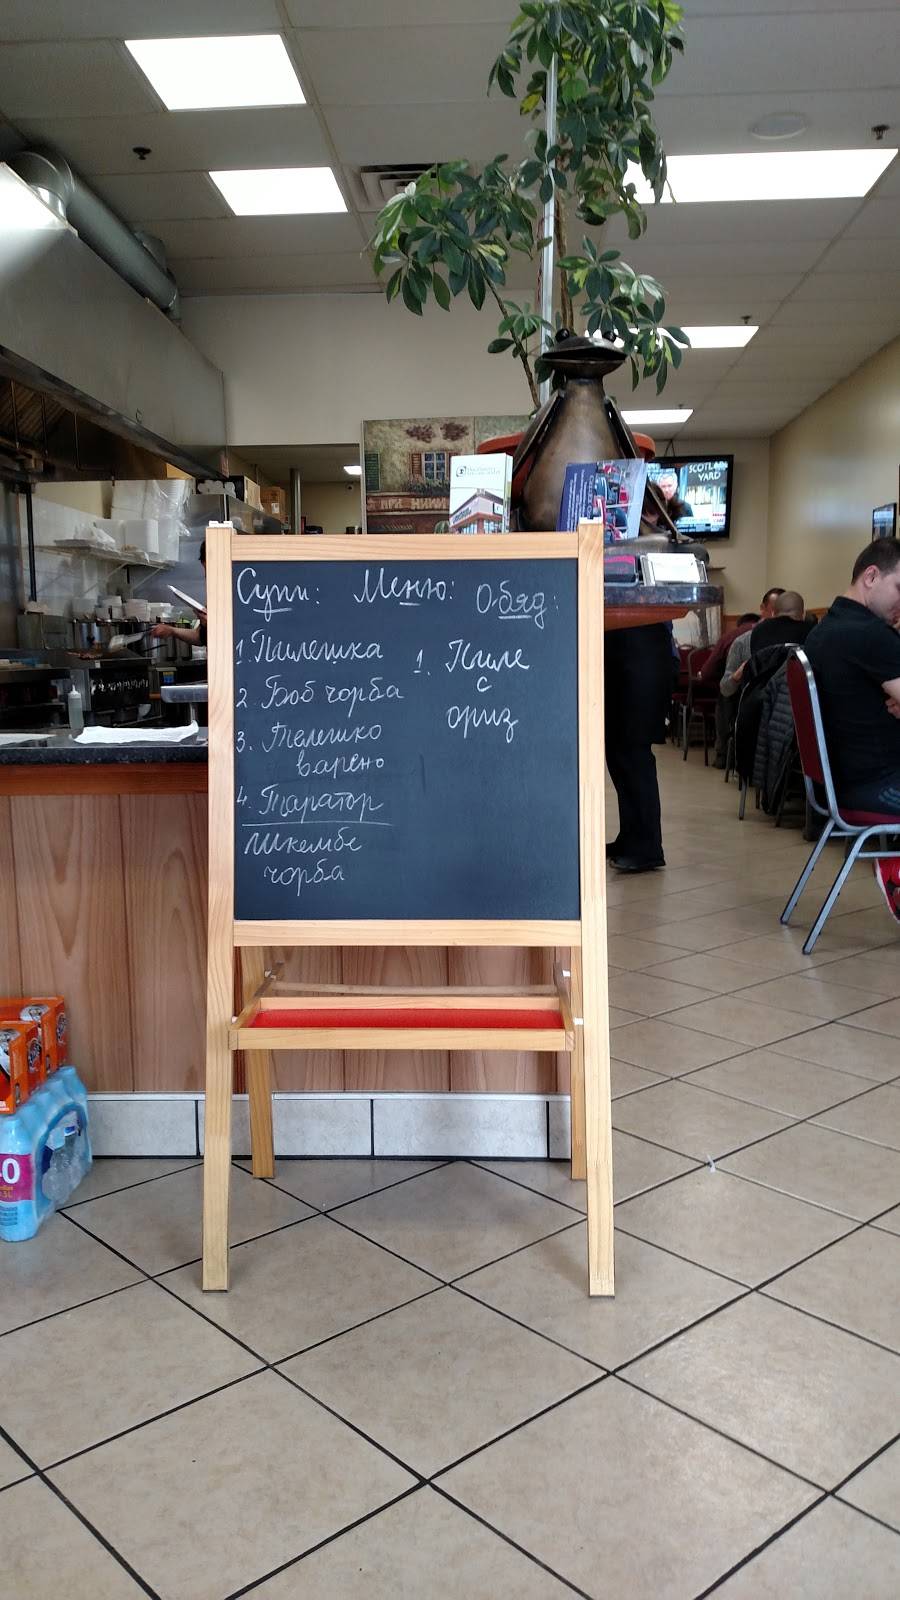 Супи: Меню: Обяд:
1. Пилешка
2. Боб чорба
3. Телешко
варено
4. Таратор
Шкембе
чорба
1. Пиле
с
ориз
SCOTLAND
YARD
ПРИ